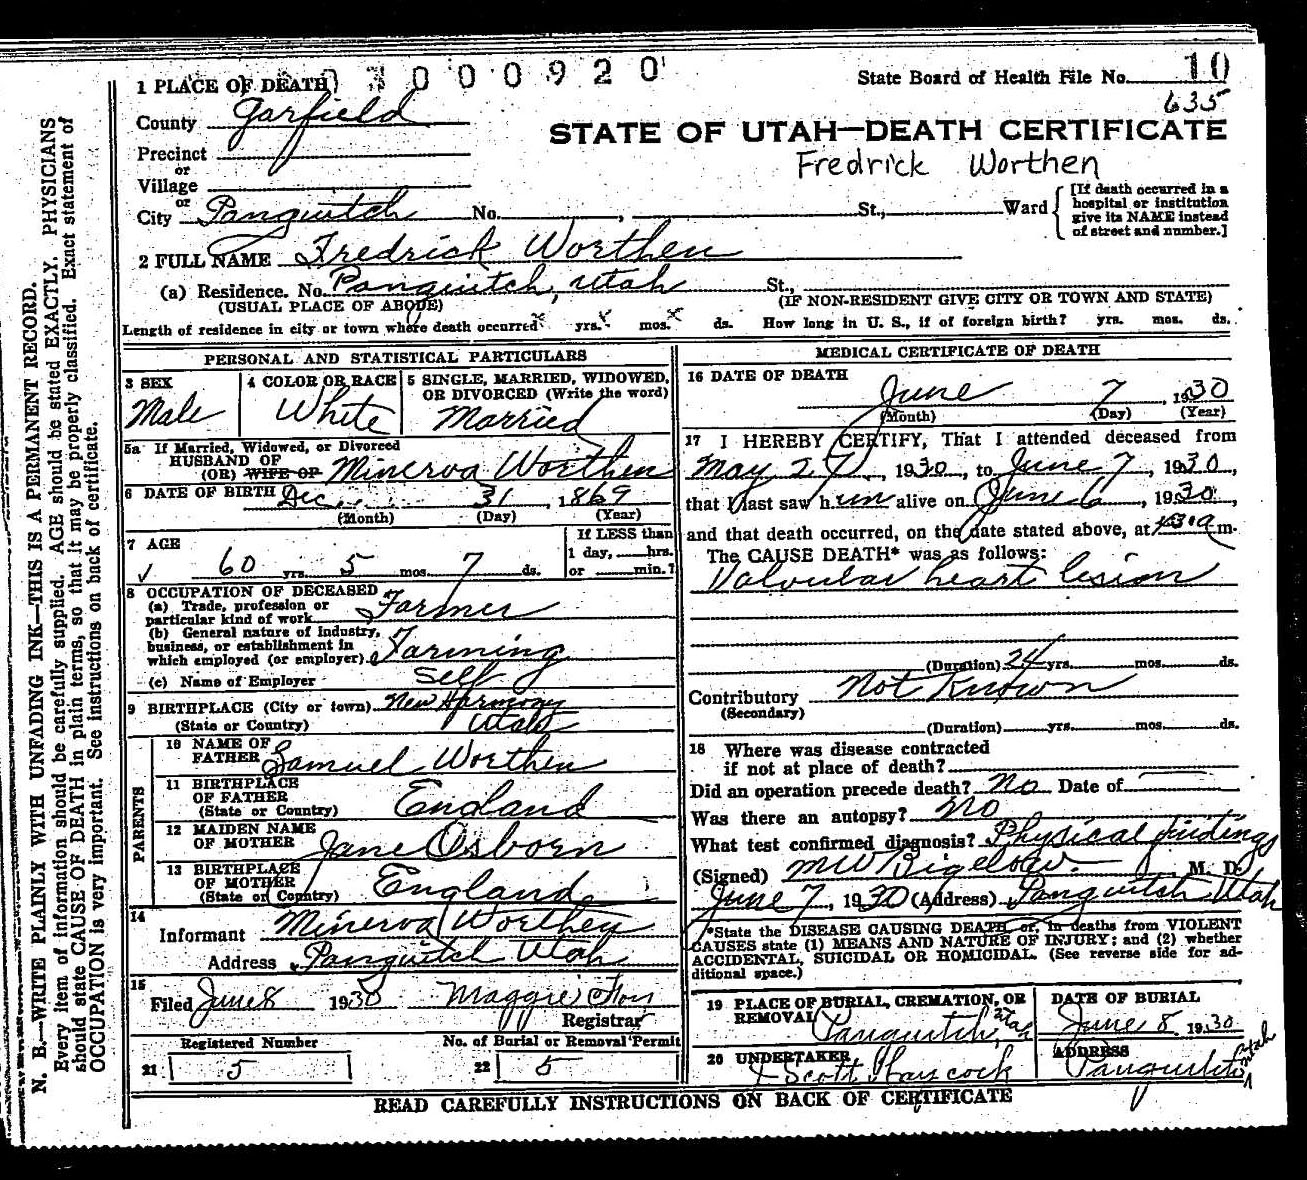 1 PLACE OF DEATH 3 0 0 0 9 2 0
State Board of Health File No. 10
635
County Garfield
STATE OF UTAH—DEATH CERTIFICATE
Precinct
Fredrick Worthen
or
Village
or
City Panguitch No. , St., Ward
[If death occurred in a
hospital or institution
give its NAME instead
of street and number.]
2 FULL NAME Fredrick Worthen
(a) Residence. No. Panguitch, Utah St.,
(USUAL PLACE OF ABODE) (IF NON-RESIDENT GIVE CITY OR TOWN AND STATE)
Length of residence in city or town where death occurred x yrs. x mos. x ds. How long in U. S., if of foreign birth? yrs. mos. ds.
PERSONAL AND STATISTICAL PARTICULARS
3 SEX
Male
4 COLOR OR RACE
White
5 SINGLE, MARRIED, WIDOWED,
OR DIVORCED (Write the word)
Married
5a If Married, Widowed, or Divorced
HUSBAND OF
(OR) WIFE OF Minerva Worthen
6 DATE OF BIRTH Dec. 31 , 1869
(Month) (Day) (Year)
7 AGE
60 yrs. 5 mos. 7 ds.
If LESS than
1 day, hrs.
or min.?
8 OCCUPATION OF DECEASED
(a) Trade, profession or
particular kind of work Farmer
(b) General nature of industry,
business, or establishment in
which employed (or employer) Farming
(c) Name of Employer Self
9 BIRTHPLACE (City or town) New Harmony
(State or Country) Utah
PARENTS
10 NAME OF
FATHER Samuel Worthen
11 BIRTHPLACE
OF FATHER
(State or Country) England
12 MAIDEN NAME
OF MOTHER Jane Osborn
13 BIRTHPLACE
OF MOTHER
(State or Country) England
14
Informant Minerva Worthen
Address Panguitch Utah
15
Filed June 8 1930 Maggie Foy
Registrar
Registered Number No. of Burial or Removal Permit
21 5 22 5
MEDICAL CERTIFICATE OF DEATH
16 DATE OF DEATH
June 7 , 1930
(Month) (Day) (Year)
17 I HEREBY CERTIFY, That I attended deceased from
May 27 , 1930, to June 7 , 1930,
that I last saw him alive on June 6 , 1930,
and that death occurred, on the date stated above, at m.
The CAUSE DEATH* was as follows:
Valvular heart lesion
(Duration) 24 yrs. mos. ds.
Contributory Not Known
(Secondary)
(Duration) yrs. mos. ds.
18 Where was disease contracted
if not at place of death?
Did an operation precede death? No Date of
Was there an autopsy? No
What test confirmed diagnosis? Physical findings
(Signed) M W Bigelow M. D.
June 7, 1930 (Address) Panguitch Utah
*State the DISEASE CAUSING DEATH or, in deaths from VIOLENT
CAUSES state (1) MEANS AND NATURE OF INJURY; and (2) whether
ACCIDENTAL, SUICIDAL OR HOMICIDAL. (See reverse side for ad-
ditional space.)
19 PLACE OF BURIAL, CREMATION, OR
REMOVAL Panguitch, Utah
DATE OF BURIAL
June 8 1930
20 UNDERTAKER
Scott Haycock
ADDRESS
Panguitch Utah
READ CAREFULLY INSTRUCTIONS ON BACK OF CERTIFICATE
N. B.—WRITE PLAINLY WITH UNFADING INK—THIS IS A PERMANENT RECORD.
Every item of information should be carefully supplied. AGE should be stated EXACTLY. PHYSICIANS
should state CAUSE OF DEATH in plain terms, so that it may be properly classified. Exact statement of
OCCUPATION is very important. See instructions on back of certificate.